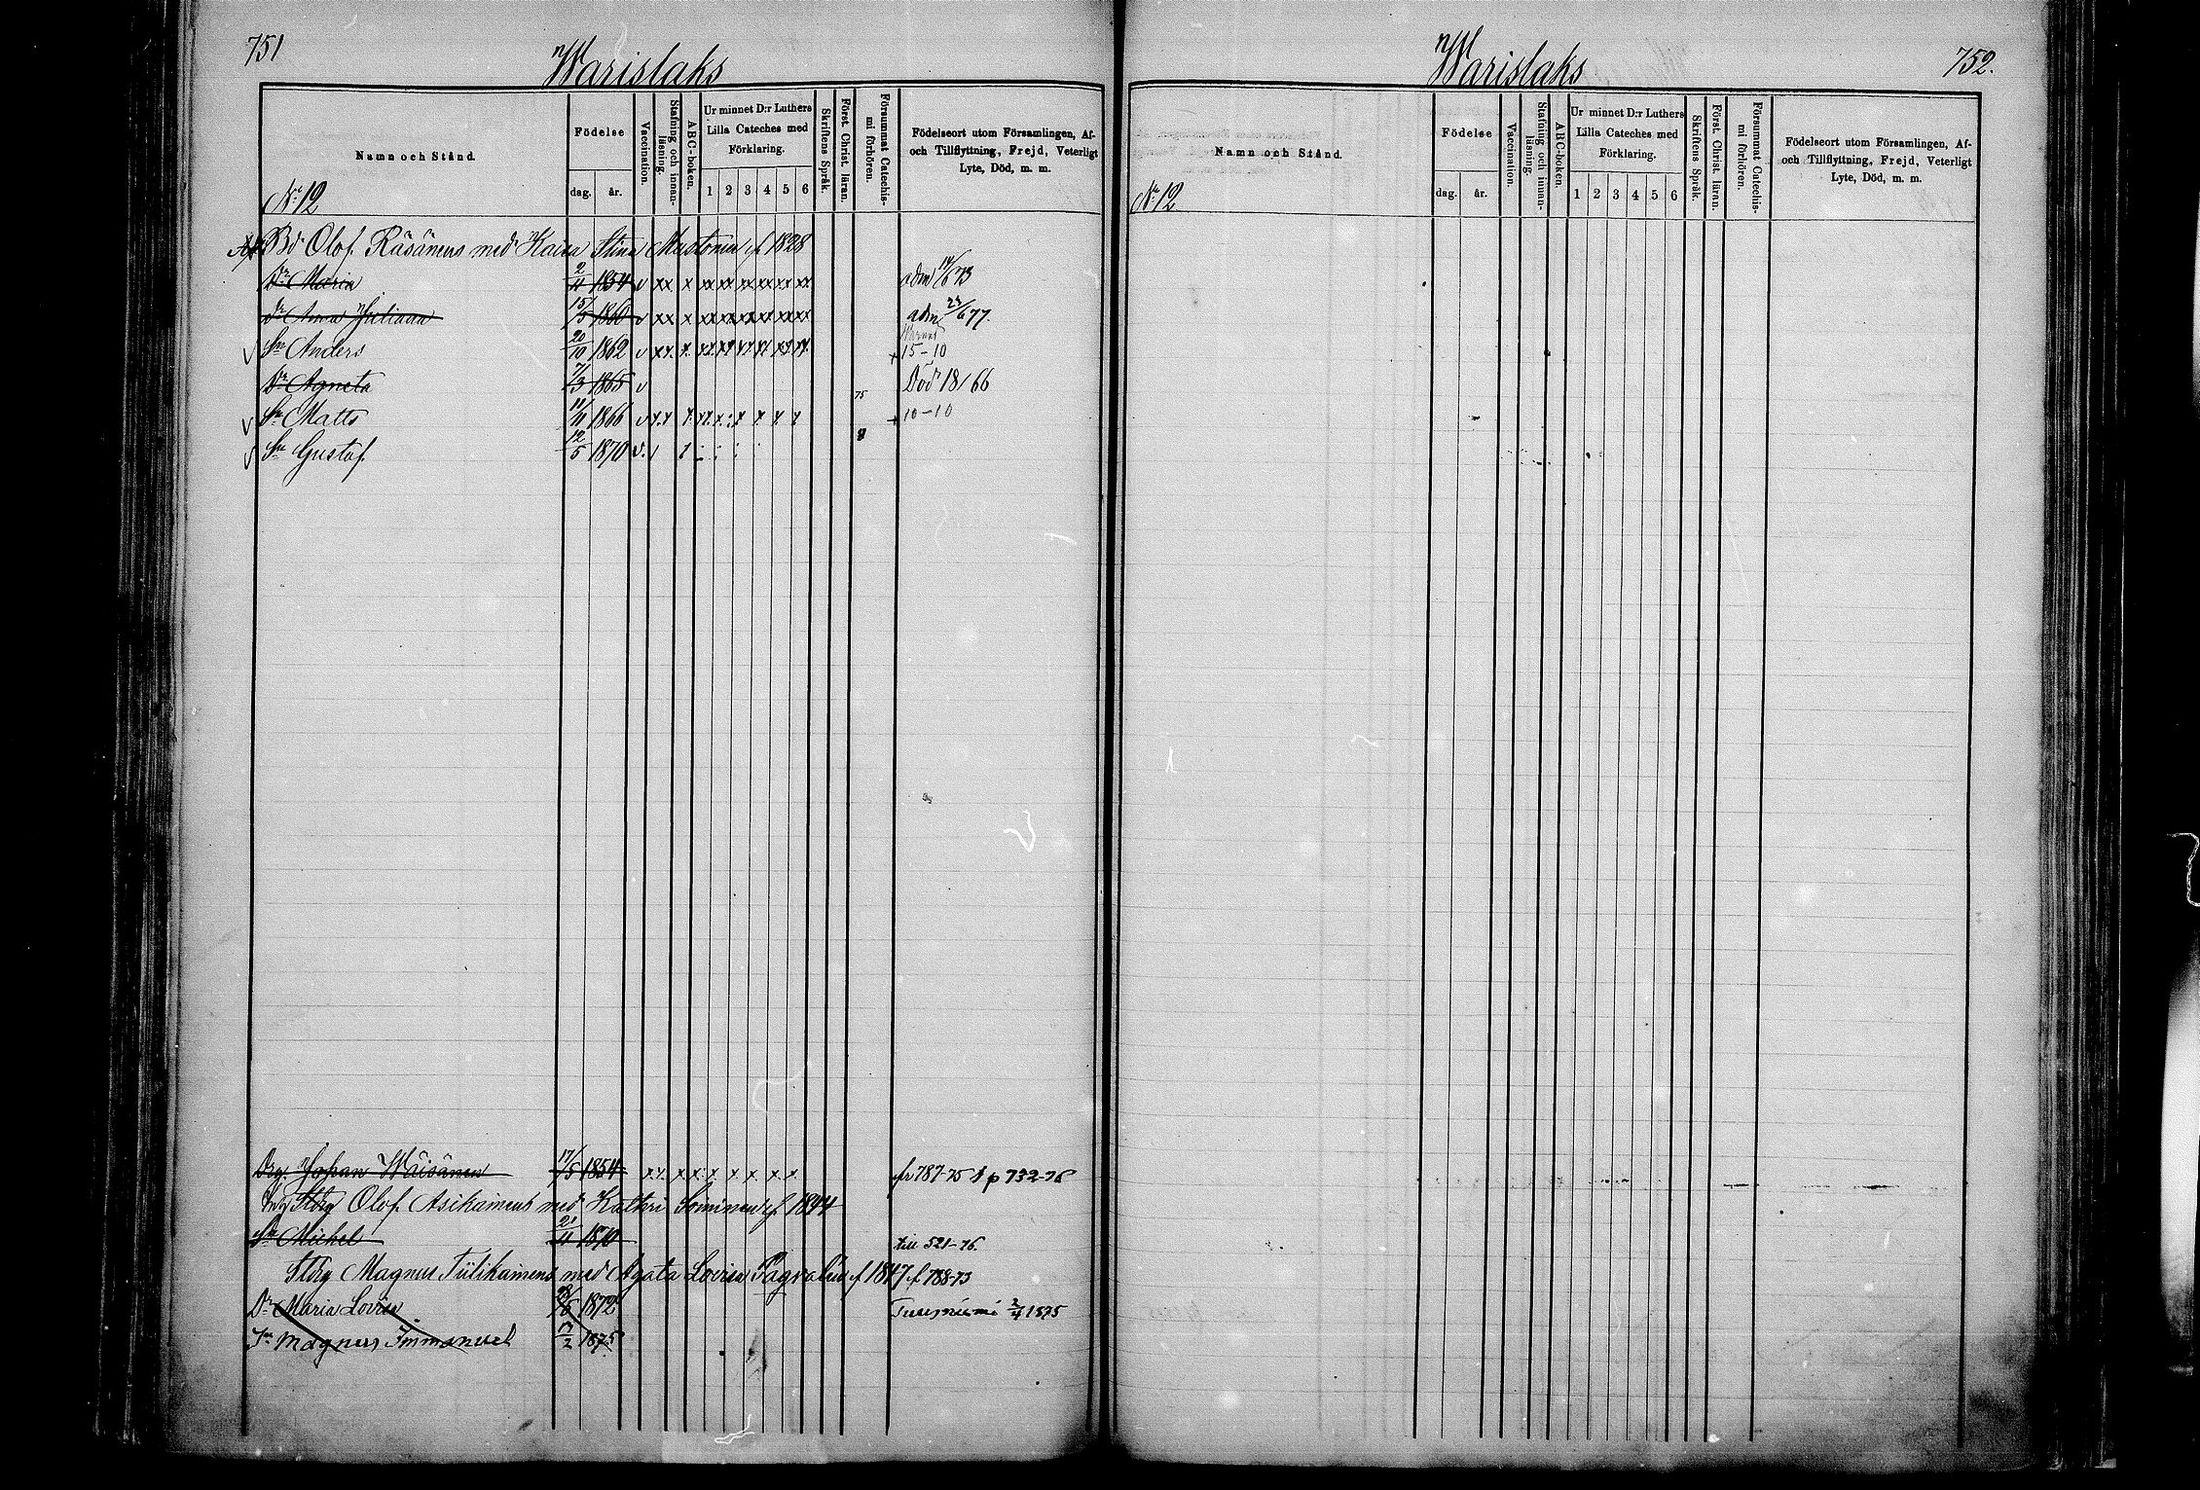 751
Warislaks
Namn och Stånd.
Födelse
dag.
år.
Vaccination.
Stafning och innan-
läsning.
ABC-boken.
Ur minnet D:r Luthers
Lilla Cateches med
Förklaring.
1 2 3 4 5 6
Skriftens Språk.
Först. Christ. läran.
Försummat Catechis-
mi förhören.
Födelseort utom Församlingen, Af-
och Tillflyttning, Frejd, Veterligt
Lyte, Död, m. m.
No 12
Bd Olof Räsänens med Kaisa Stina Mustonen f 1828
Dr Maria 2/11 1854 v xx x xx xx xx xx xx xx adm 14/6 73
Dr Anna Juliana 15/5 1860 v xx x xx xx xx xx xx xx adm 23/6 77.
Sn Anders 20/10 1862 v xx x 15-10
Dr Agneta 7/3 1865 v Död 18/66
75
Sn Matts 11/11 1866 v x x + 10-10
Sn Gustaf 12/5 1870 v
Drg. Johan Wäisänen 17/5 1854 x x x x x x x x fr 787-75 p 732-76
Stdrg Olof Asikainens med Kathri f. 1844
Sn Michel 21/11 1870 till 521-76.
Stdrg Magnus Tiilikainens med Agata Lovisa f 1847 f. 788-73
Dr Maria Lovisa 1872 2/4 1875
Sn Magnus Immanuel 17/2 1875
Warislaks
752.
Namn och Stånd.
Födelse
dag.
år.
Vaccination.
Stafning och innan-
läsning.
ABC-boken.
Ur minnet D:r Luthers
Lilla Cateches med
Förklaring.
1 2 3 4 5 6
Skriftens Språk.
Först. Christ. läran.
Försummat Catechis-
mi förhören.
Födelseort utom Församlingen, Af-
och Tillflyttning, Frejd, Veterligt
Lyte, Död, m. m.
No 12